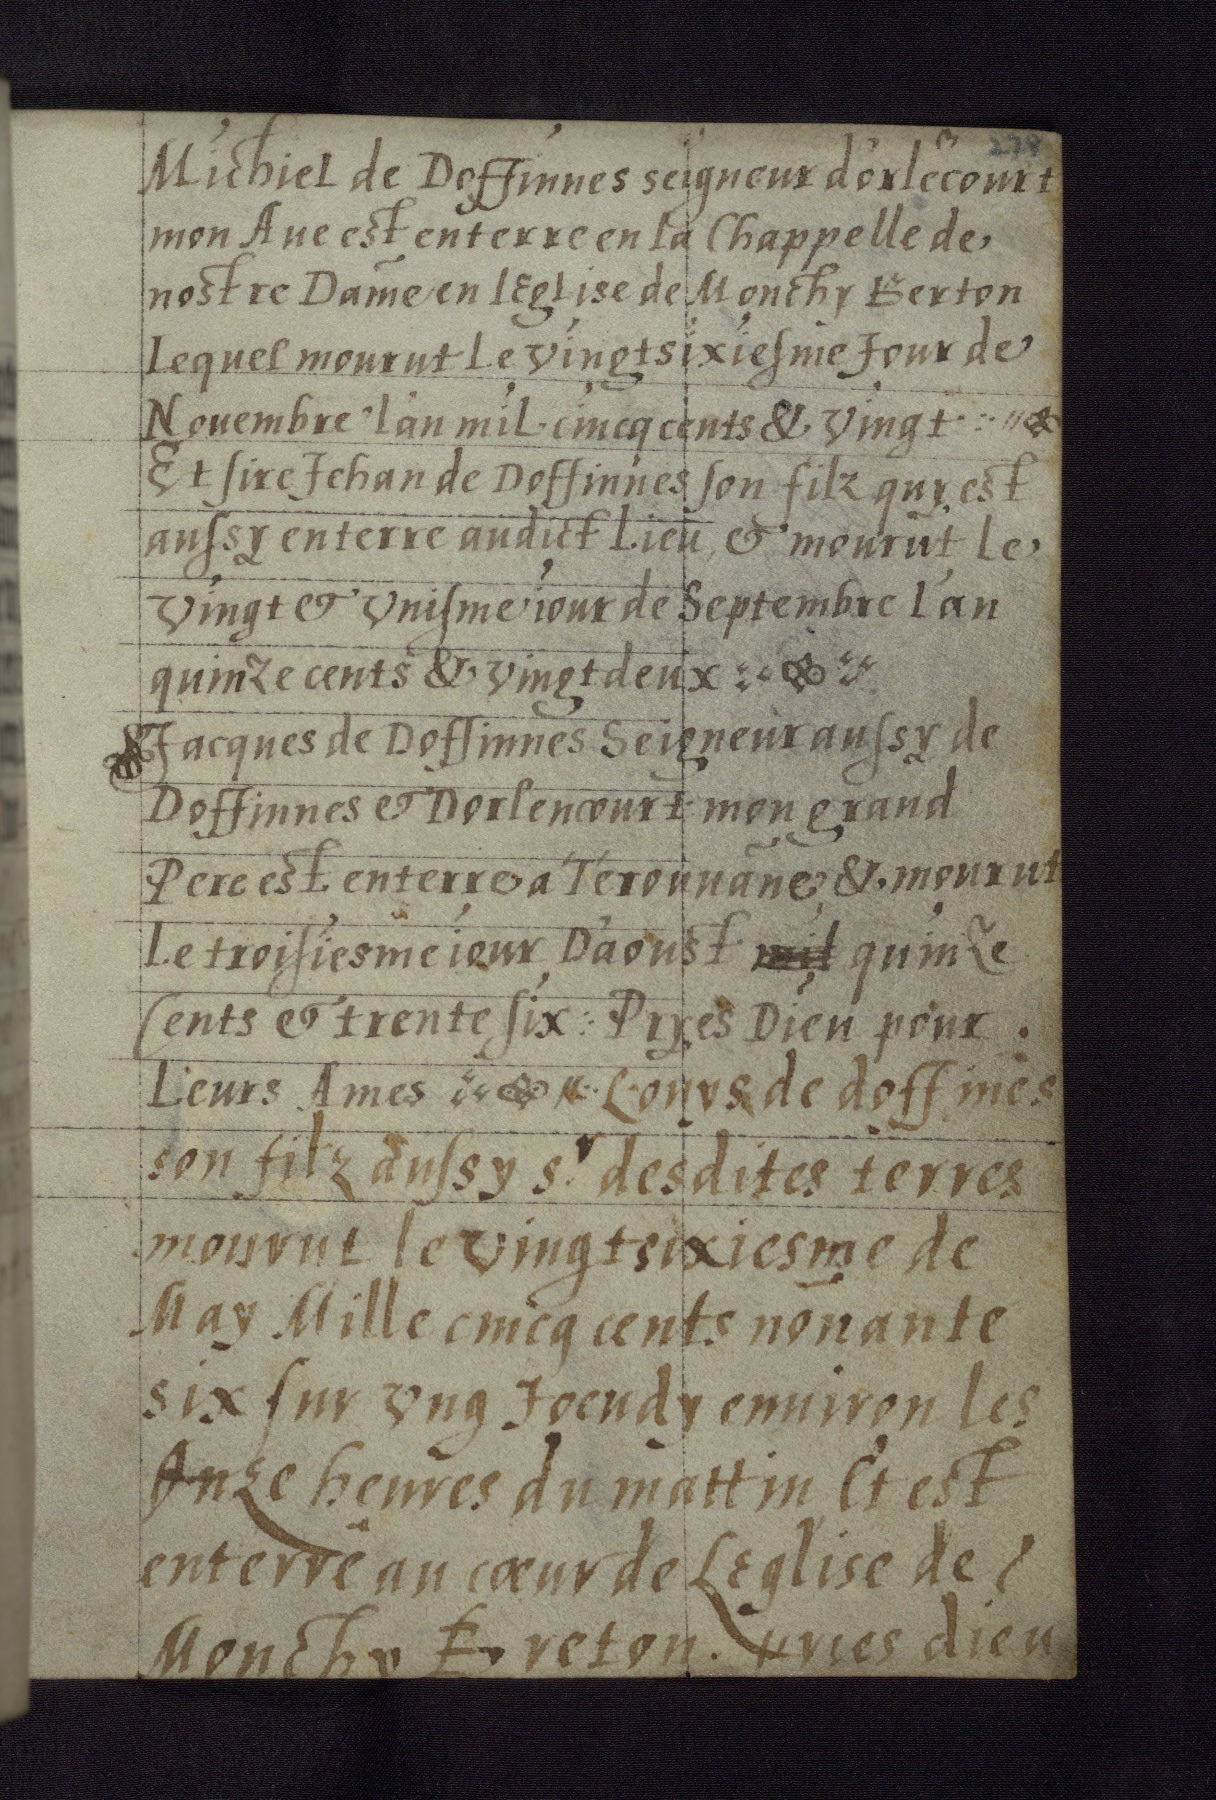 278
Michiel de Doffinnes seigneur dorlēcourt
mon Aue est enterre en la Chappelle de
nostre Dame en lEglise de Monchy Berton
Lequel mourut Le vingtsixiesme Jour de
Nouembre l'an mil cincq cents & vingt
Et sire Jehan de Doffinnes son filz quy est
aussy enterre audict Lieu & mourut le
vingt & vnisme iour de Septembre l'an
quinze cents & vingtdeux
Jacques de Doffinnes Seigneur aussy de
Doffinnes & Dorlencourt mon grand
Pere est enterre a Térouuane, & mourut
Le troisiesme iour D'aoust mil quinze
Cents & trente six: Pryes Dieu pour
Leurs Ames Louys de doffines
son filz aussy sr desdites terres
mourut le vingtsixiesme de
May Mille cincq cents nonante
six sur vng Joeudy enuiron les
Onze heures du mattin Et est
enterré au cœur de LEglise de
Monchy Breton. pries dieu